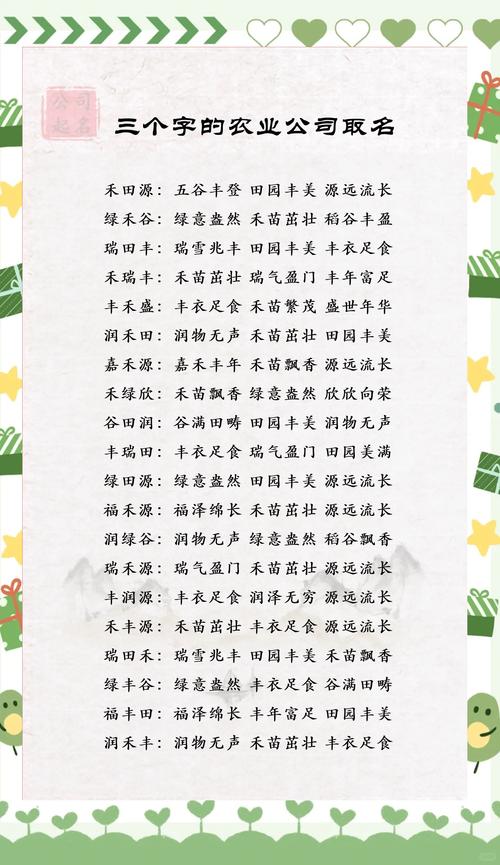 公司
起名
三个字的农业公司取名
禾田源：五谷丰登 田园丰美 源远流长
绿禾谷：绿意盎然 禾苗茁壮 稻谷丰盈
瑞田丰：瑞雪兆丰 田园丰美 丰衣足食
禾瑞丰：禾苗茁壮 瑞气盈门 丰年富足
丰禾盛：丰衣足食 禾苗繁茂 盛世年华
润禾田：润物无声 禾苗茁壮 田园丰美
嘉禾源：嘉禾丰年 禾苗飘香 源远流长
禾绿欣：禾苗飘香 绿意盎然 欣欣向荣
谷田润：谷满田畴 田园丰美 润物无声
丰瑞田：丰衣足食 瑞气盈门 田园美满
绿田源：绿意盎然 田园丰美 源远流长
福禾源：福泽绵长 禾苗茁壮 源远流长
润绿谷：润物无声 绿意盎然 稻谷飘香
瑞禾源：瑞气盈门 禾苗茁壮 源远流长
丰润源：丰衣足食 润泽无穷 源远流长
禾丰源：禾苗茁壮 丰衣足食 源远流长
瑞田禾：瑞雪兆丰 田园丰美 禾苗飘香
绿丰谷：绿意盎然 丰衣足食 谷满田畴
福丰田：福泽绵长 丰年富足 田园丰美
润禾丰：润物无声 禾苗茁壮 丰衣足食